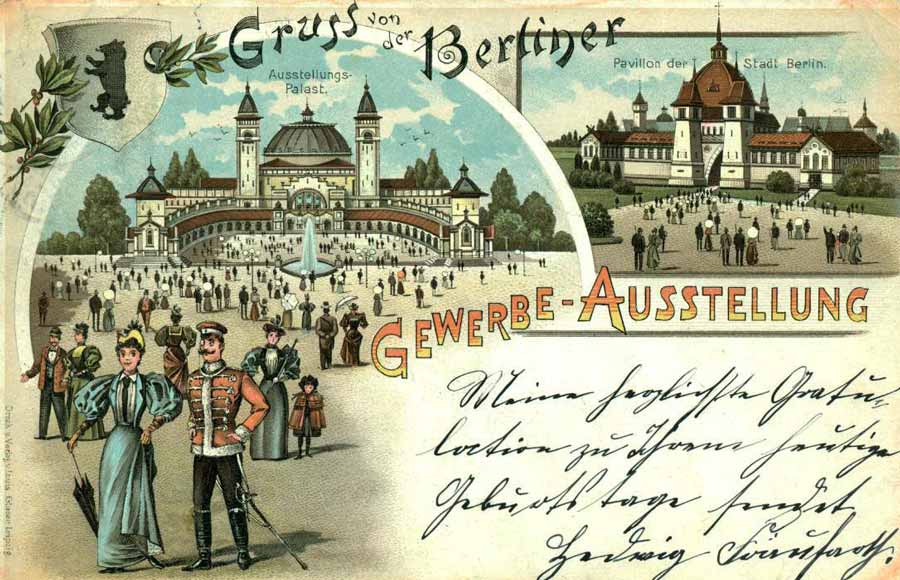 Gruss von der Berliner
Ausstellungs-
Palast.
Pavillon der Stadt Berlin.
GEWERBE-AUSSTELLUNG
Meine herzlichste Gratu-
lation zu Ihrem heutige
Geburtstage sendet
Hedwig
Druck u Verlag v Louis Glaser Leipzig.